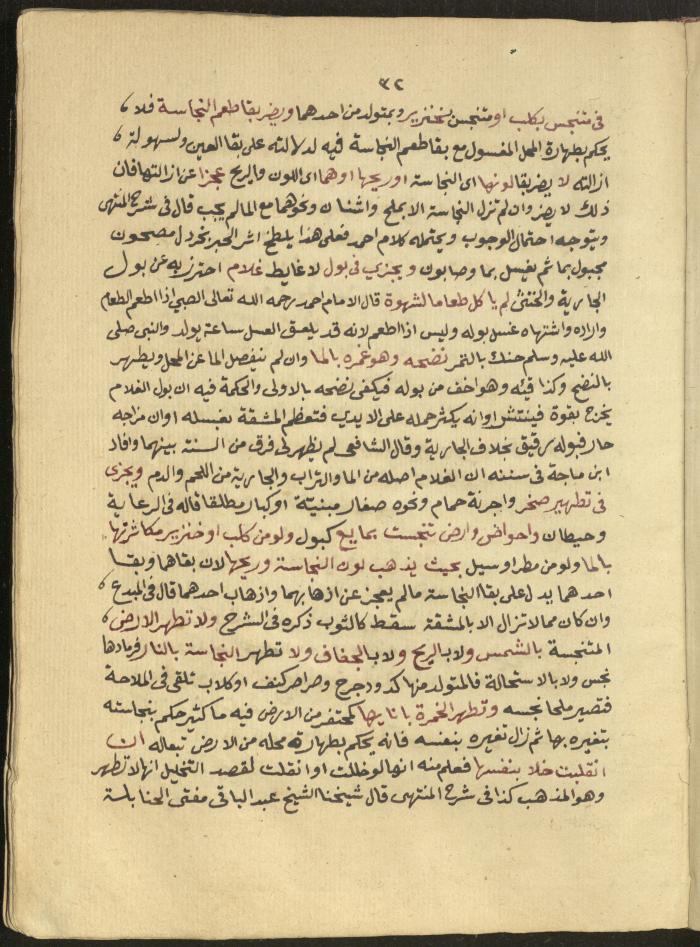 ٣٢
فى متنجس بكلب او متنجس بخنزير وبمتولد من احدهما ويضر بقا طعم النجاسة فلا
يحكم بطهارة المحل المغسول مع بقا طعم النجاسة فيه لدلالته على بقا العين ولسهولة
ازالته لا يضر بقا لونها اى النجاسة او ريحها او هما اى اللون والريح عجزا عن ازالتها فان
ذلك لا يضر وان لم تزل النجاسة الا بملح واشنان ونحوهما مع الما لم يجب قال فى شرح المنتهى
ويتوجه احتمال الوجوب ويحتمله كلام احمد فعلى هذا يلطخ اثر الحبر بخردل مصحون
مجبول بما ثم يغسل بما وصابون ويجزي فى بول لا غايط غلام احترز به عن بول
الجارية والخنثى لم ياكل طعاما لشهوة قال الامام احمد رحمه الله تعالى الصبي اذا اطعم الطعام
واراده واشتهاه غسل بوله وليس اذا اطعم لانه قد يلعق العسل ساعة يولد والنبى صلى
الله عليه وسلم حنك بالتمر نضحه وهو غمره بالما وان لم ينفصل الما عن المحل ويطهر
بالنضح وكذا قيئه وهو اخف من بوله فيكفى نضحه بالاولى والحكمة فيه ان بول الغلام
يخرج بقوة فينتشر او انه يكثر حمله على الايدي فتعظم المشقة بغسله او ان مزاجه
حار فبوله رقيق بخلاف الجارية وقال الشافعى لم يظهر لى فرق من السنة بينهما وافاد
ابن ماجة فى سننه ان الغلام اصله من الما والتراب والجارية من اللحم والدم ويجزى
فى تطهير صخر واجرنة حمام ونحوه صغار مبنيّة او كبار مطلقا قاله فى الرعاية
وحيطان واحواض وارض تنجست بمايع كبول ولو من كلب او خنزير مكاثرتها
بالما ولو من مطر او سيل بحيث يذهب لون النجاسة وريحها لان بقاهما وبقا
احدهما يدل على بقا النجاسة ما لم يعجز عن اذهابهما واذهاب احدهما قال فى المبدع
وان كان مما لا تزال الا بالمشقة سقط كالثوب ذكره فى الشرح ولا تطهر الارض
المتنجسة بالشمس ولا بالريح ولا بالجفاف ولا تطهر النجاسة بالنار فرمادها
نجس ولا بالاستحالة فالمتولد منها كدود جرح وصراصر كنف او كلاب تلقى فى الملاحة
فتصير ملحا نجسه وتطهر الخمرة بانايها كمحتفر من الارض فيه ما كثير حكم بنجاسته
بتغيره بها ثم زال تغيره بنفسه فانه يحكم بطهارة محله من الارض تبعا له ان
انقلبت خلا بنفسها فعلم منه انها لو خللت او انقلت لقصد التخليل انها لا تطهر
وهو المذهب كذا فى شرح المنتهى قال شيخنا الشيخ عبد الباقى مفتى الحنابلة